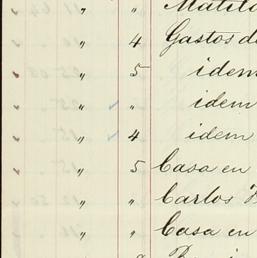 " " Matild
" 4 Gastos d
" 5 idem
" " idem
" 4 idem
" 5 Casa en
" " Carlos
" " Casa en